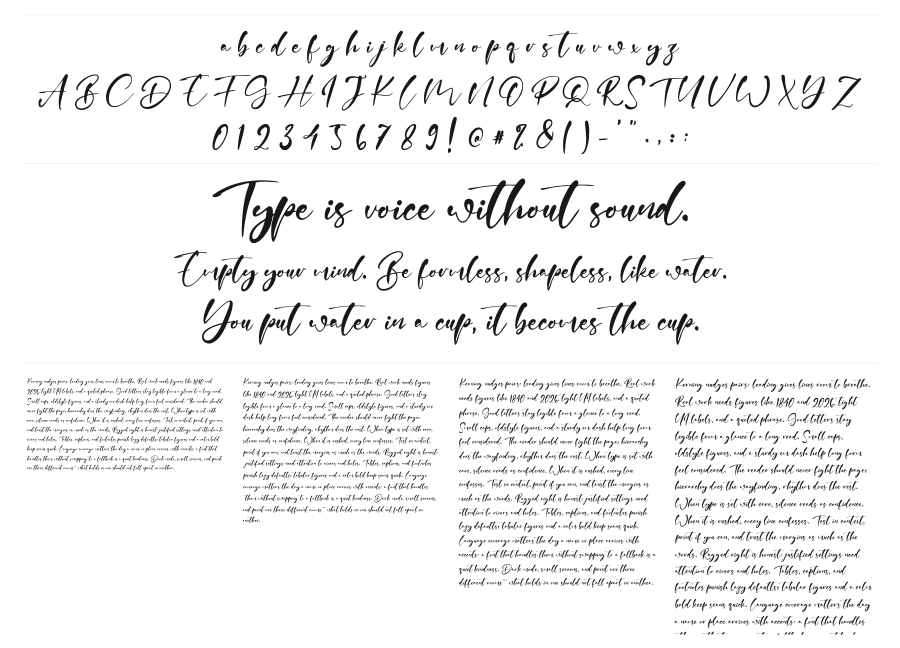 a b c d e f g h i j k l m n o p q r s t u v w x y z
A B C D E F G H I J K L M N O P Q R S T U V W X Y Z
0 1 2 3 4 5 6 7 8 9 ! @ # ? & ( ) - ' " . , : ;
Type is voice without sound.
Empty your mind. Be formless, shapeless, like water.
You put water in a cup, it becomes the cup.
Kerning nudges pairs; leading gives lines room to breathe. Real work needs figures like 1840 and
2026, tight UI labels, and a quoted phrase. Good letters stay legible from a glance to a long read.
Small caps, oldstyle figures, and a sturdy en dash help long form feel considered. The reader should
never fight the page: hierarchy does the wayfinding, rhythm does the rest. When type is set with
care, silence reads as confidence. When it is rushed, every line confesses. Test in context, print if you can,
and trust the margins as much as the words. Ragged right is honest; justified settings need attention to
rivers and holes. Tables, captions, and footnotes punish lazy defaults: tabular figures and a calm bold
keep scans quick. Language coverage matters the day a name or place arrives with accents: a font that
handles them without swapping to a fallback is a quiet kindness. Dark mode, small screens, and print
are three different rooms—what holds in one should not fall apart in another.
Kerning nudges pairs; leading gives lines room to breathe. Real work needs figures
like 1840 and 2026, tight UI labels, and a quoted phrase. Good letters stay
legible from a glance to a long read. Small caps, oldstyle figures, and a sturdy en
dash help long form feel considered. The reader should never fight the page:
hierarchy does the wayfinding, rhythm does the rest. When type is set with care,
silence reads as confidence. When it is rushed, every line confesses. Test in context,
print if you can, and trust the margins as much as the words. Ragged right is honest;
justified settings need attention to rivers and holes. Tables, captions, and footnotes
punish lazy defaults: tabular figures and a calm bold keep scans quick. Language
coverage matters the day a name or place arrives with accents: a font that handles
them without swapping to a fallback is a quiet kindness. Dark mode, small screens,
and print are three different rooms—what holds in one should not fall apart in
another.
Kerning nudges pairs; leading gives lines room to breathe. Real work
needs figures like 1840 and 2026, tight UI labels, and a quoted
phrase. Good letters stay legible from a glance to a long read.
Small caps, oldstyle figures, and a sturdy en dash help long form
feel considered. The reader should never fight the page: hierarchy
does the wayfinding, rhythm does the rest. When type is set with
care, silence reads as confidence. When it is rushed, every line
confesses. Test in context, print if you can, and trust the margins as
much as the words. Ragged right is honest; justified settings need
attention to rivers and holes. Tables, captions, and footnotes punish
lazy defaults: tabular figures and a calm bold keep scans quick.
Language coverage matters the day a name or place arrives with
accents: a font that handles them without swapping to a fallback is a
quiet kindness. Dark mode, small screens, and print are three
different rooms—what holds in one should not fall apart in another.
Kerning nudges pairs; leading gives lines room to breathe.
Real work needs figures like 1840 and 2026, tight
UI labels, and a quoted phrase. Good letters stay
legible from a glance to a long read. Small caps,
oldstyle figures, and a sturdy en dash help long form
feel considered. The reader should never fight the page:
hierarchy does the wayfinding, rhythm does the rest.
When type is set with care, silence reads as confidence.
When it is rushed, every line confesses. Test in context,
print if you can, and trust the margins as much as the
words. Ragged right is honest; justified settings need
attention to rivers and holes. Tables, captions, and
footnotes punish lazy defaults: tabular figures and a calm
bold keep scans quick. Language coverage matters the day
a name or place arrives with accents: a font that handles